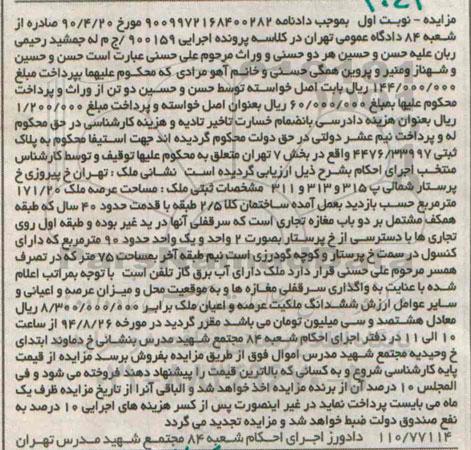 مزایده - نوبت اول بموجب دادنامه ۹۰۰۹۹۷۲۱۶۸۴۰۰۲۸۲ مورخ ۹۰/۴/۲۰ صادره از
شعبه ۸۴ دادگاه عمومی تهران در کلاسه پرونده اجرایی ۹۰۰۱۵۹ /ج م له جمشید رحیمی
ربان علیه حسن و حسین هر دو حسنی و وراث مرحوم علی حسنی عبارت است حسن و حسین
و شهناز ومنیر و پروین همگی حسنی و خانم آهو مرادی که محکوم علیهما بپرداخت مبلغ
۱۴۴/۰۰۰/۰۰۰ ریال بابت اصل خواسته توسط حسن و حسین دو تن از وراث و پرداخت
محکوم علیها بمبلغ ۶۰/۰۰۰/۰۰۰ ریال بعنوان اصل خواسته و پرداخت مبلغ ۱/۲۰۰/۰۰۰
ریال بعنوان هزینه دادرسی بانضمام خسارت تاخیر تادیه و هزینه کارشناسی در حق محکوم
له و پرداخت نیم عشر دولتی در حق دولت محکوم گردیده اند جهت استیفا محکوم به پلاک
ثبتی ۴۴۷۶/۳۳۹۹۷ واقع در بخش ۷ تهران متعلق به محکوم علیها توقیف و توسط کارشناس
منتخب اجرای احکام بشرح ذیل ارزیابی گردیده است نشانی ملک : تهران خ پیروزی خ
پرستار شمالی پ ۳۱۵ و ۳۱۳ و ۳۱۱ مشخصات ثبتی ملک : مساحت عرصه ملک ۱۷۱/۲۰
مترمربع حسب بازدید بعمل آمده ساختمان کلا ۲/۵ طبقه با قدمت حدود ۴۰ سال که طبقه
همکف مشتمل بر دو باب مغازه تجاری است که سرقفلی آنها در ید غیر بوده و طبقه اول روی
تجاری ها با دسترسی از خ پرستار بصورت ۲ واحد و یک واحد حدود ۹۰ مترمربع که دارای
کنسول در سمت خ پرستار و کوچه گودرزی است نیم طبقه آخر بمساحت ۷۵ متر که در تصرف
همسر مرحوم علی حسنی قرار دارد ملک دارای آب برق گاز تلفن است با توجه بمراتب اعلام
شده با عنایت به واگذاری سرقفلی مغازه ها و به موقعیت محل و میزان عرصه و اعیانی و
سایر عوامل ارزش ششدانگ ملکیت عرصه و اعیان ملک برابر ۸/۳۰۰/۰۰۰/۰۰۰ ریال
معادل هشتصد و سی میلیون تومان می باشد مقرر گردید در مورخه ۹۴/۸/۲۶ از ساعت
۱۰ الی ۱۱ در دفتر اجرای احکام شعبه ۸۴ مجتمع شهید مدرس بنشانی خ دماوند ابتدای
خ وحیدیه مجتمع شهید مدرس اموال فوق از طریق مزایده بفروش برسد مزایده از قیمت
پایه کارشناسی شروع و به کسانی که بالاترین قیمت را پیشنهاد دهند فروخته می شود و فی
المجلس ۱۰ درصد آن از برنده مزایده اخذ خواهد شد و الباقی آنرا از تاریخ مزایده ظرف یک
ماه می بایست پرداخت نماید در غیر اینصورت پس از کسر هزینه های اجرایی ۱۰ درصد به
نفع صندوق دولت ضبط خواهد شد و مزایده تجدید می گردد
۱۱۰/۷۷۱۱۴ دادورز اجرای احکام شعبه ۸۴ مجتمع شهید مدرس تهران